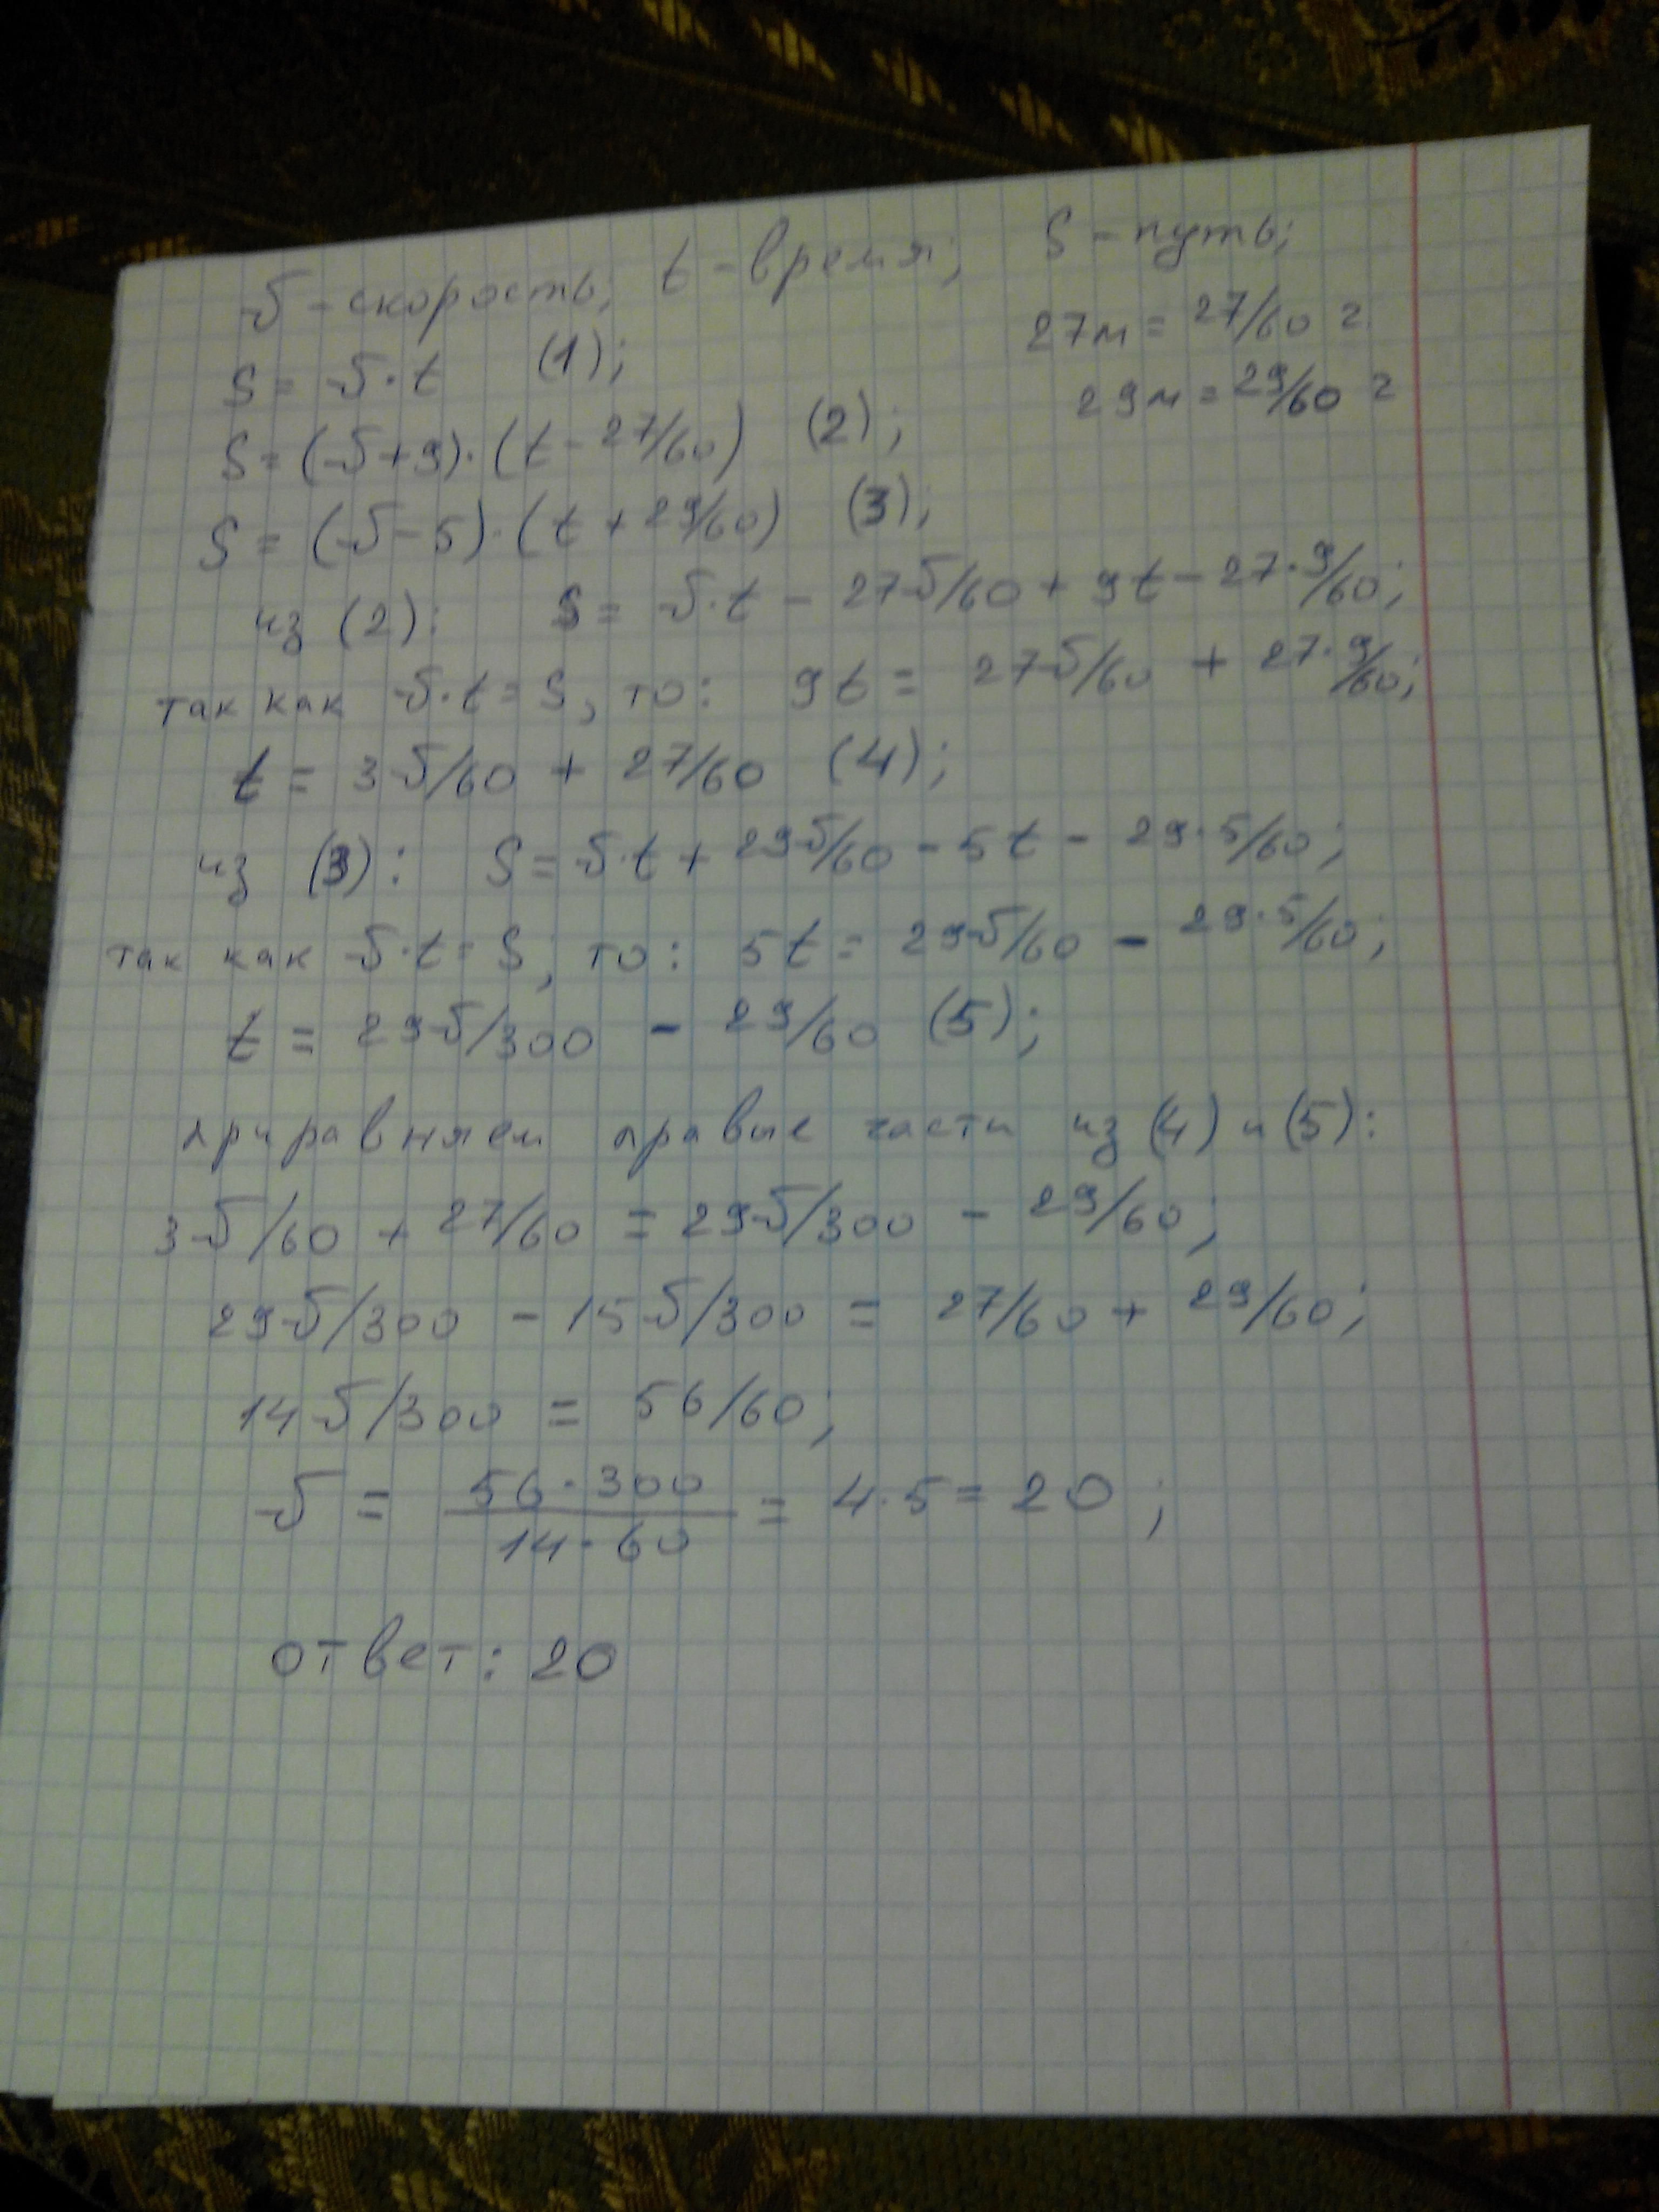 v - скорость; t - время; S - путь;
S = v·t (1); 27м = 27/60 г
S = (v+9)·(t - 27/60) (2); 29м = 29/60 г
S = (v-5)·(t + 29/60) (3);
из (2): S = v·t - 27v/60 + 9t - 27·9/60;
так как v·t = S, то: 9t = 27v/60 + 27·9/60;
t = 3v/60 + 27/60 (4);
из (3): S = v·t + 29v/60 - 5t - 29·5/60;
так как v·t = S, то: 5t = 29v/60 - 29·5/60;
t = 29v/300 - 29/60 (5);
приравняем правые части из (4) и (5):
3v/60 + 27/60 = 29v/300 - 29/60;
29v/300 - 15v/300 = 27/60 + 29/60;
14v/300 = 56/60;
v = 56·300/14·60 = 4·5 = 20;
ответ: 20